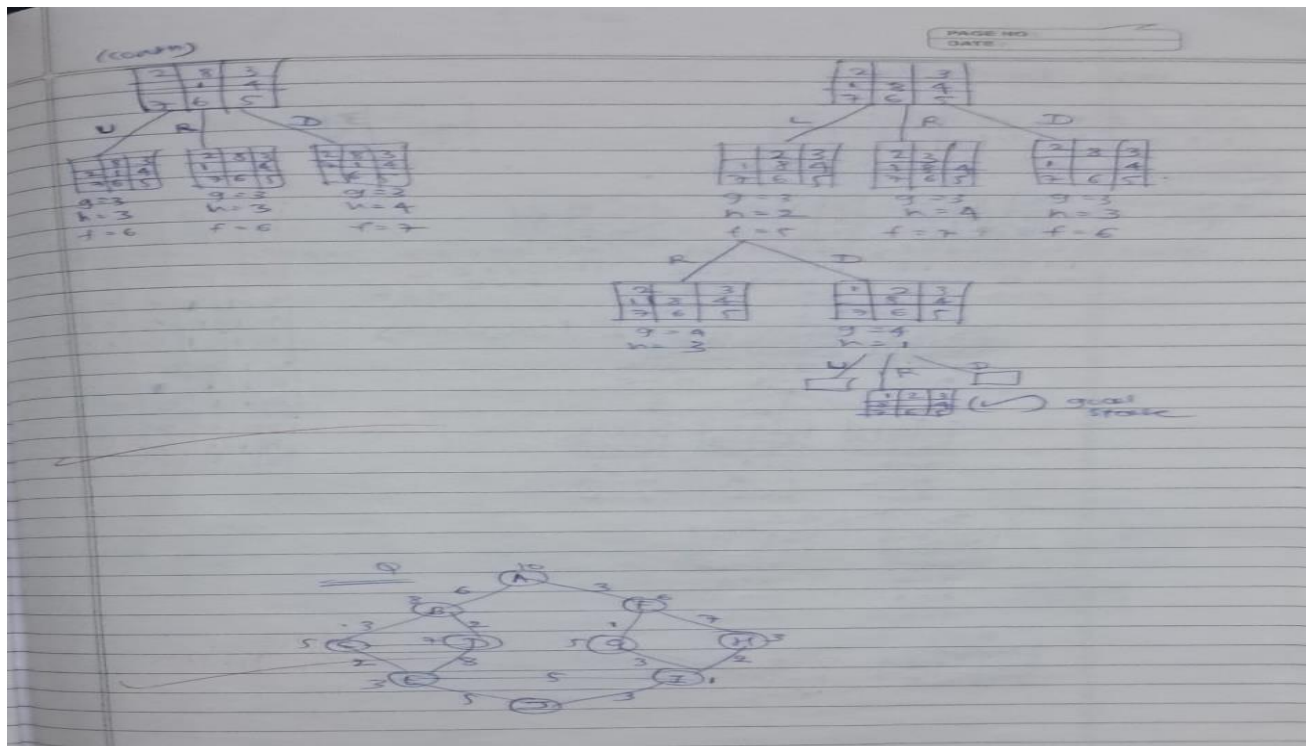 PAGE NO :
DATE :
(contn)
2 8 3
1 4
7 6 5
U R D
8 3
2 1 4
7 6 5
g = 3
h = 3
f = 6
2 8 3
1 4
7 6 5
g = 3
h = 3
f = 6
2 8 3
7 1 4
6 5
g = 3
h = 4
f = 7
2 3
1 8 4
7 6 5
L R D
2 3
1 8 4
7 6 5
g = 3
h = 2
f = 5
2 3
1 8 4
7 6 5
g = 3
h = 4
f = 7
2 8 3
1 4
7 6 5
g = 3
h = 3
f = 6
R D
2 3
1 8 4
7 6 5
g = 4
h = 3
1 2 3
8 4
7 6 5
g = 4
h = 1
U R D
1 2 3
8 4
7 6 5
goal
state
Q
10
A
6 3
B F 6
3 2 1 7
5 C D 5 G H 3
2 8 3 2
3 E 5 I 1
5 J 3